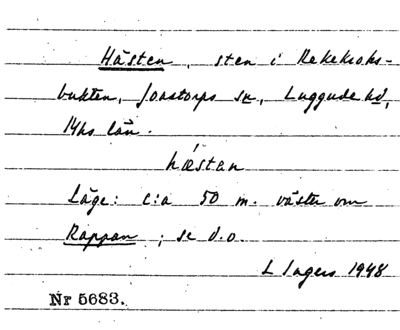 Hästen, sten i Rekekroks-
bukten, Jonstorps sn, Luggude hd,
Mhs län.
hæ̀stan
Läge: c:a 50 m. väster om
Kappan; se d.o.
L Ingers 1948
Nr 5683.